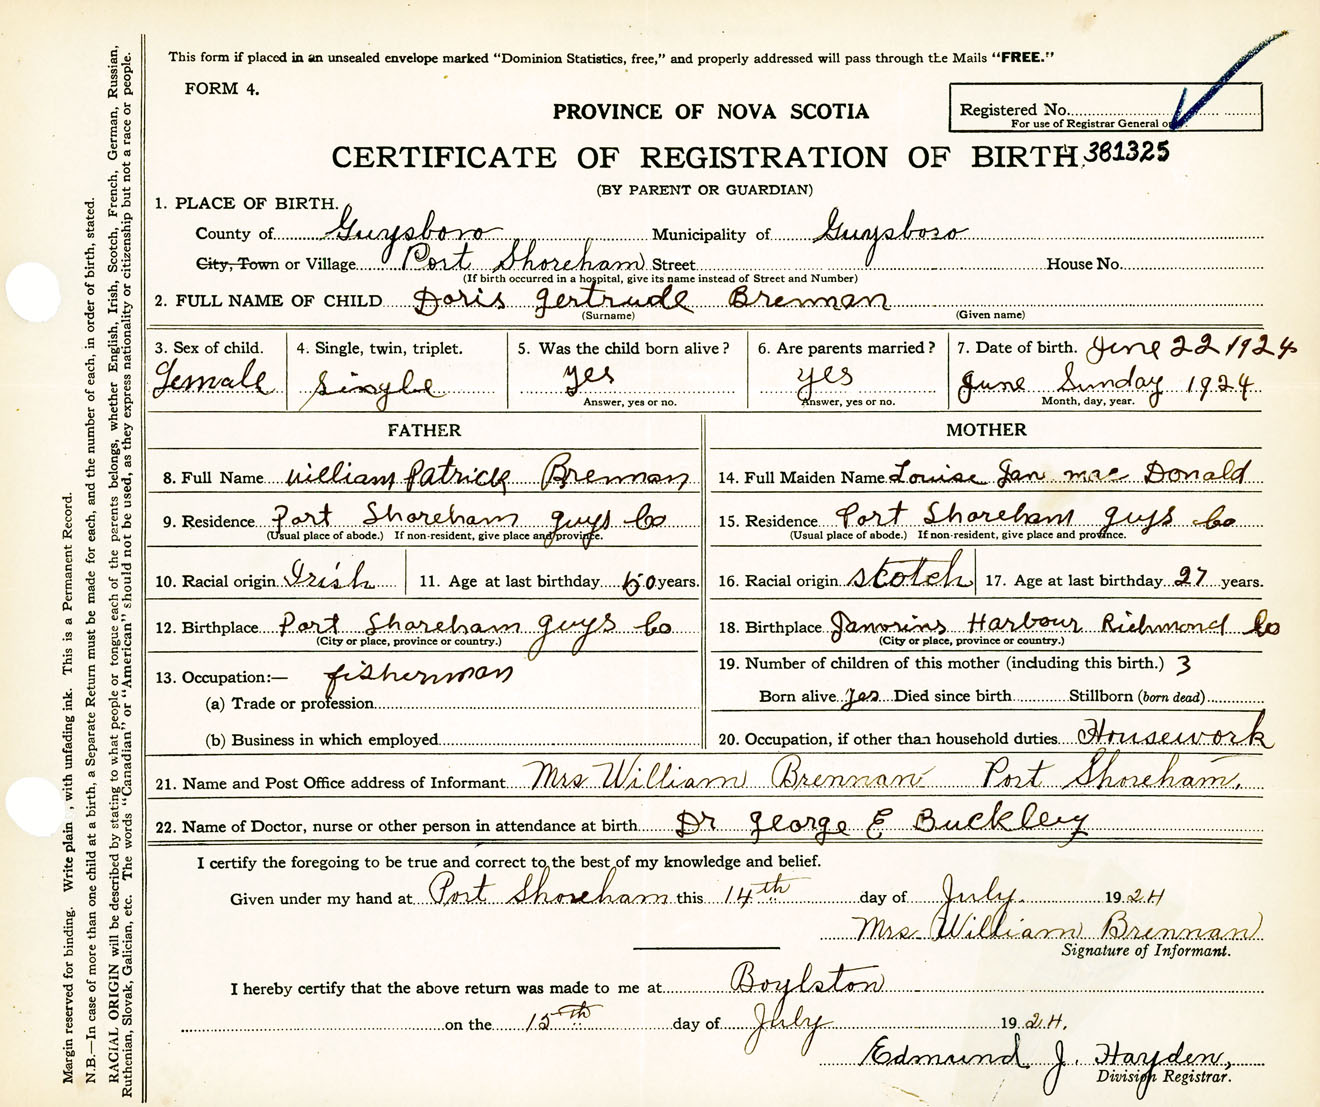 This form if placed in an unsealed envelope marked "Dominion Statistics, free," and properly addressed will pass through the Mails "FREE."
FORM 4.
PROVINCE OF NOVA SCOTIA
Registered No.
For use of Registrar General
CERTIFICATE OF REGISTRATION OF BIRTH 381325
(BY PARENT OR GUARDIAN)
1. PLACE OF BIRTH.
County of Guysboro Municipality of Guysboro
City, Town or Village Port Shoreham Street House No.
(If birth occurred in a hospital, give its name instead of Street and Number)
2. FULL NAME OF CHILD Doris Gertrude Brennan
(Surname) (Given name)
3. Sex of child. 4. Single, twin, triplet. 5. Was the child born alive? 6. Are parents married? 7. Date of birth. June 22 1924
Female single yes yes June Sunday 1924
Answer, yes or no. Answer, yes or no. Month, day, year.
FATHER MOTHER
8. Full Name William Patrick Brennan 14. Full Maiden Name Louise Jan mac Donald
9. Residence Port Shoreham guys Co 15. Residence Port Shoreham guys Co
(Usual place of abode.) If non-resident, give place and province. (Usual place of abode.) If non-resident, give place and province.
10. Racial origin Irish 11. Age at last birthday years. 16. Racial origin scotch 17. Age at last birthday 27 years.
12. Birthplace Port Shoreham guys Co 18. Birthplace Janvrins Harbour Richmond Co
(City or place, province or country.) (City or place, province or country.)
13. Occupation:— fisherman 19. Number of children of this mother (including this birth.) 3
(a) Trade or profession Born alive yes Died since birth Stillborn (born dead)
(b) Business in which employed 20. Occupation, if other than household duties Housework
21. Name and Post Office address of Informant Mrs William Brennan Port Shoreham.
22. Name of Doctor, nurse or other person in attendance at birth Dr george E Buckley
I certify the foregoing to be true and correct to the best of my knowledge and belief.
Given under my hand at Port Shoreham this 14th day of July 1924
Mrs. William Brennan
Signature of Informant.
I hereby certify that the above return was made to me at Boylston
on the 15th day of July 1924.
Edmund J. Hayden,
Division Registrar.
Margin reserved for binding. Write plain , with unfading ink. This is a Permanent Record.
N.B.—In case of more than one child at a birth, a Separate Return must be made for each, and the number of each, in order of birth, stated.
RACIAL ORIGIN will be described by stating to what people or tongue each of the parents belongs, whether English, Irish, Scotch, French, German, Russian,
Ruthenian, Slovak, Galician, etc. The words "Canadian" or "American" should not be used, as they express nationality or citizenship but not a race or people.